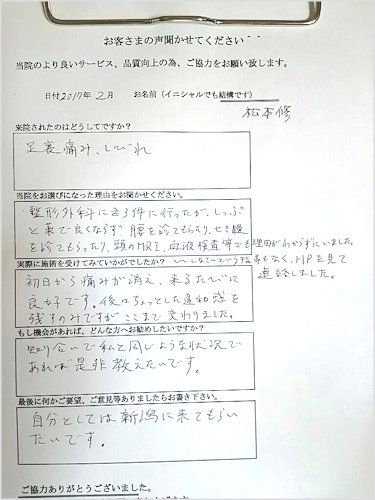 お客さまの声聞かせてください``
当院のより良いサービス、品質向上の為、ご協力をお願い致します。
日付 2017年 2月 お名前（イニシャルでも結構です）
松本修
来院されたのはどうしてですか？
足裏痛み、しびれ
当院をお選びになった理由をお聞かせください。
整形外科にも3件に行ったが、しっぷ
と薬で良くならず 腰を診てもらったり、せき髄
を診てもらったり、頭のMRI、血液検査等でも理由がわからずにいました。
HPを見て
連絡しました。
実際に施術を受けてみていかがでしたか？
初日から痛みが消え、来るたびに
良好です。後はちょっとした違和感を
残すのみですがここまで変わりました。
もし機会があれば、どんな方へお勧めしたいですか？
知り合いで私と同じような状況で
あれば是非教えたいです。
最後に何かご要望、ご意見等ありましたらお書き下さい。
自分としては新潟に来てもらい
たいです。
ご協力ありがとうございました。